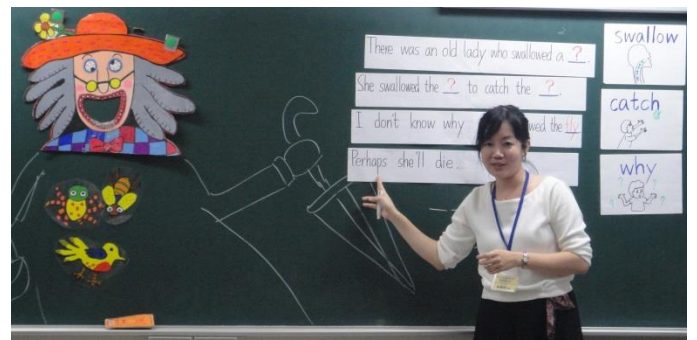 There was an old lady who swallowed a ?.
She swallowed the ? to catch the ?.
I don't know why wed the fly
Perhaps she'll die.
swallow
catch
why